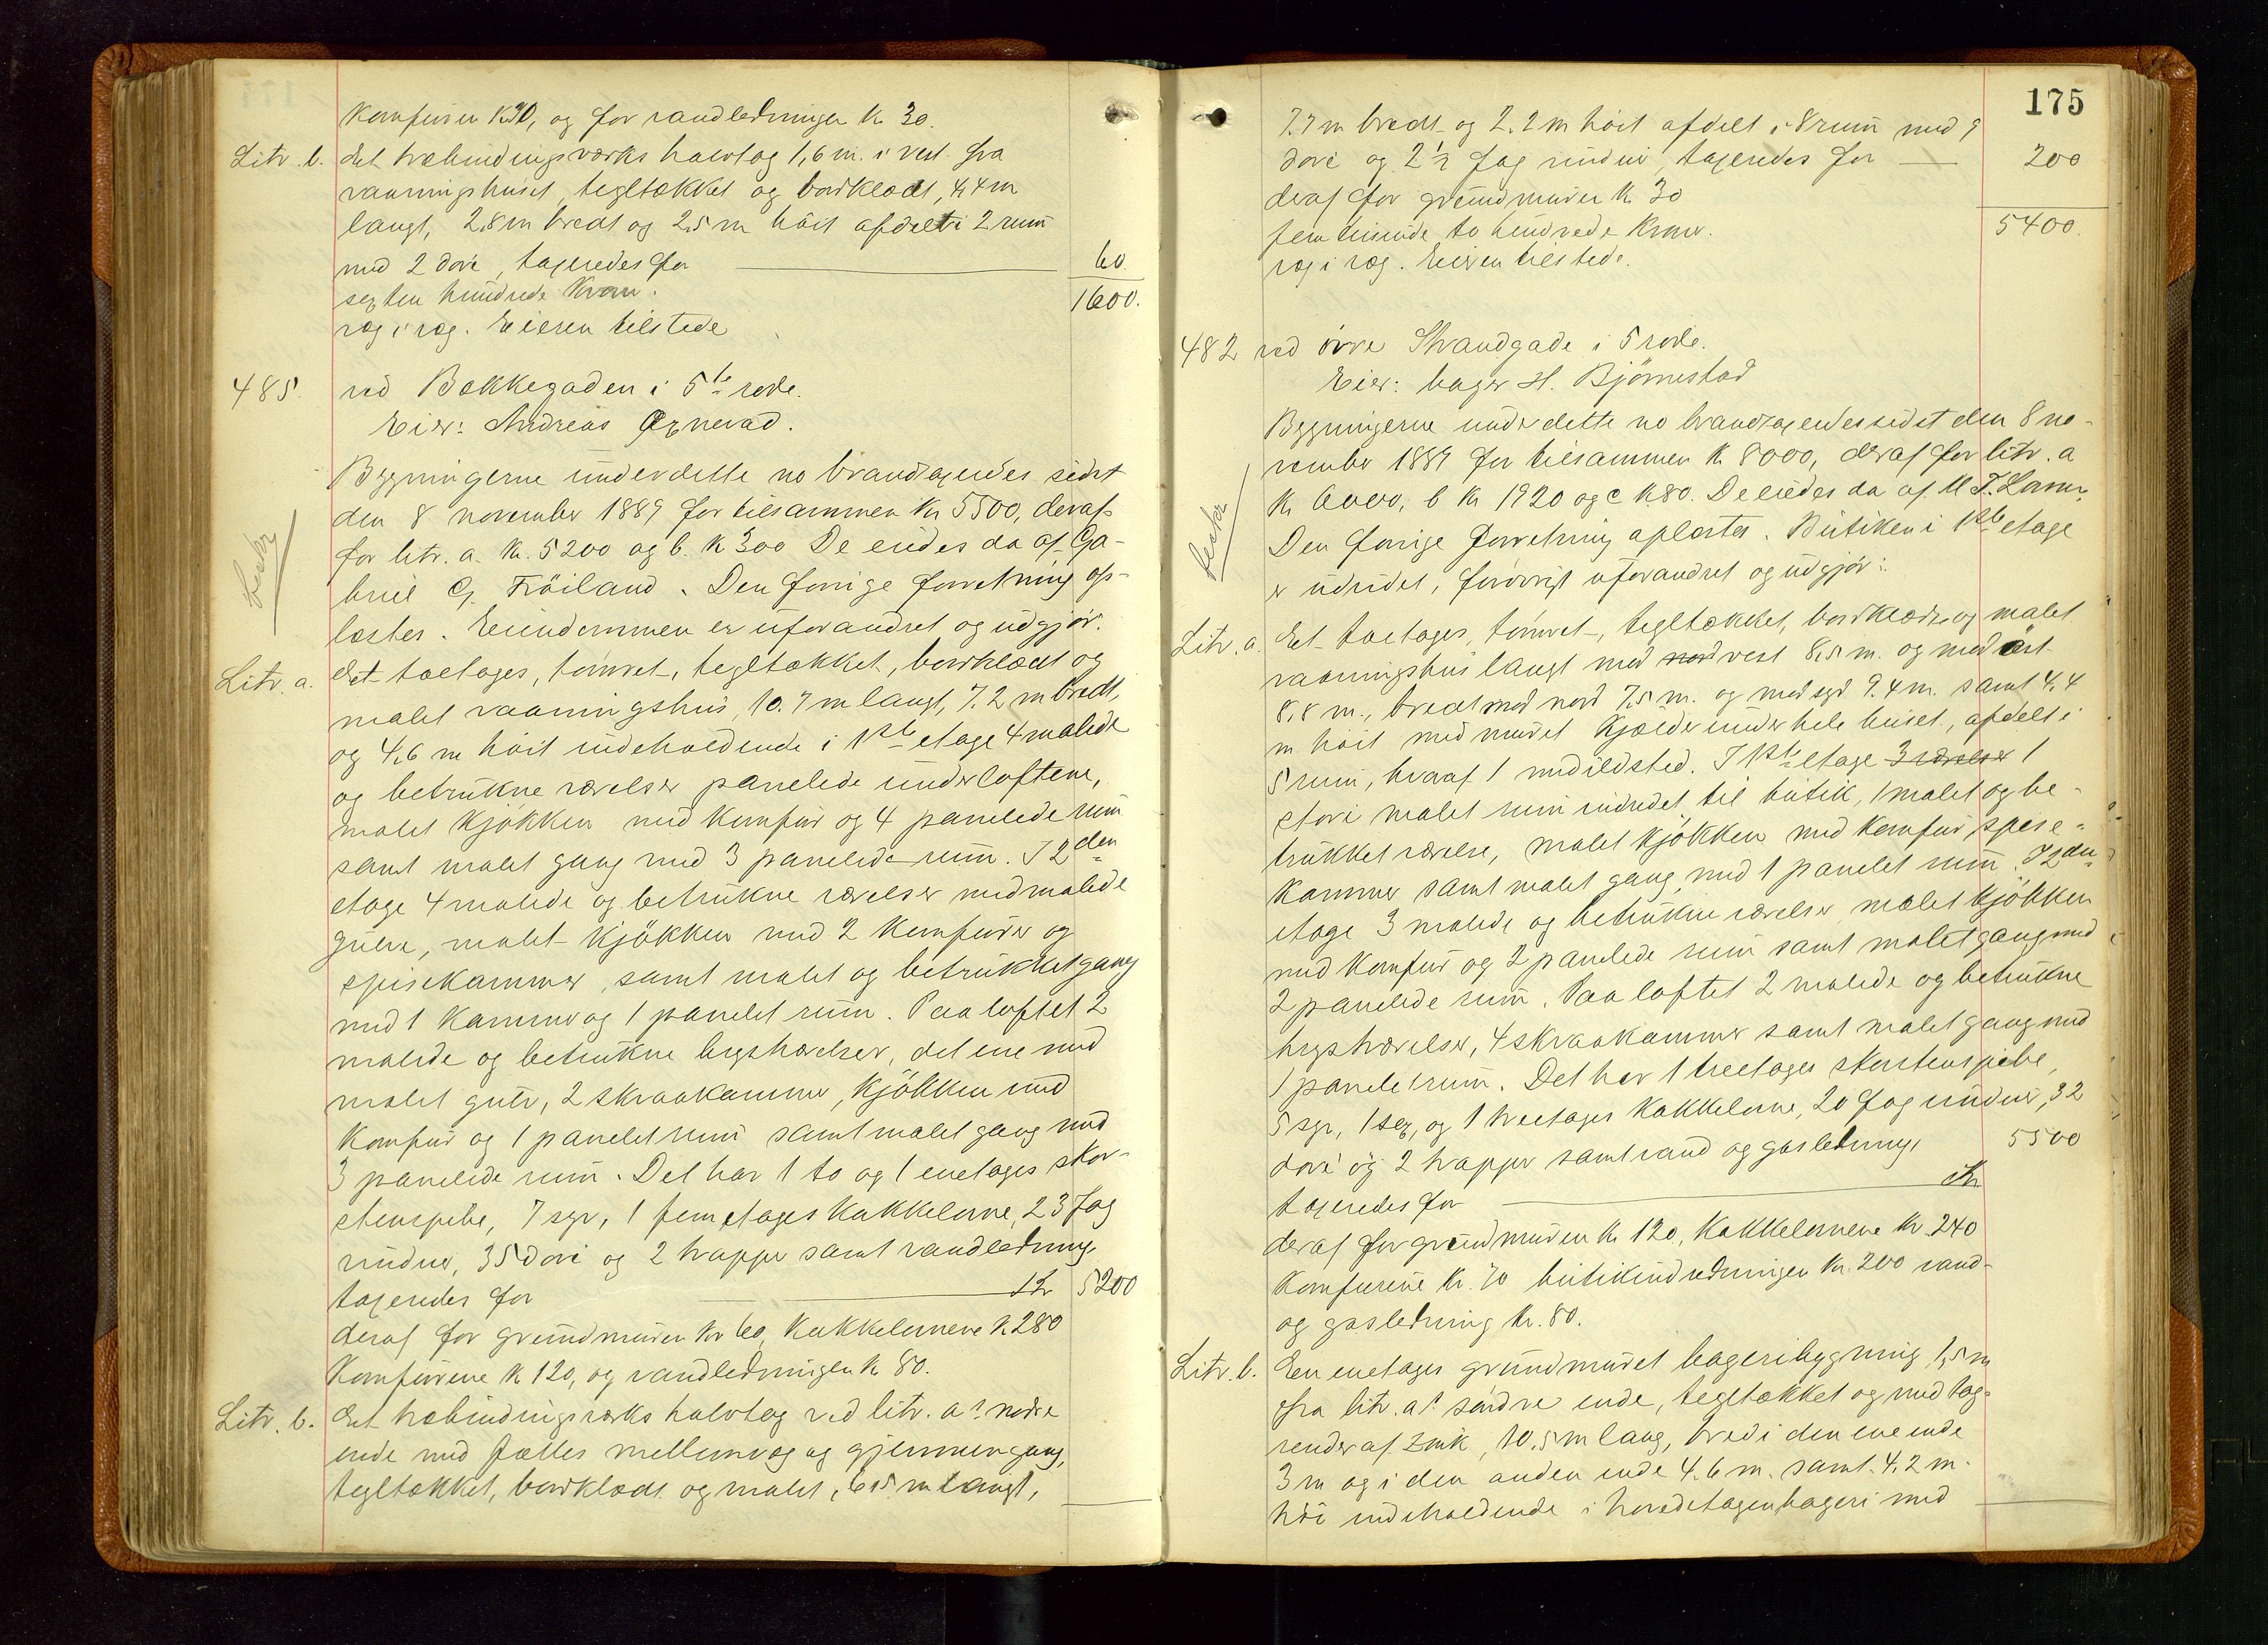 komfuren k 70, og for vandledningen k. 30.
Litr. b. det træbindingsværks halvtag 1,6 m. i vest fra
vaaningshuset, tegltækket og bordklædt, 4,4 m
langt, 2,8 m bredt og 2,5 m höit afdelt i 2 rum
med 2 döre, taxeredes for 60.
sexten hundrede kroner. 1600.
væg i væg. Eieren tilstede
485. ved Bakkegaden i 5te rode.
Eier: Andreas Oxnevad.
Bygningerne under dette no brandtaxeredes sidst
den 8 november 1889 for tilsammen kr 5500, deraf
for litr. a. kr. 5200 og b. k 300 De eiedes da af Ga-
briel G. Fröiland. Den forrige forretning op-
læstes. Eiendommen er uforandret og udgjör:
Litr. a. det toetages, tömret, tegltækket, bordklædt og
malet vaaningshus, 10.7 m langt, 7.2 m bredt,
og 4,6 m höit indeholdende i 1ste etage 4 malede
og betrukne værelser panelede under loftene,
malet kjökken med komfur og 4 panelede rum
samt malet gang med 3 panelede rum. I 2den
etage 4 malede og betrukne værelser med malede
gulve, malet kjökken med 2 komfurer og
spisekammer, samt malet og betrukket gang
med 1 kammer og 1 panelet rum. Paa loftet 2
malede og betrukne kvistværelser, det ene med
malet gulv, 2 skraakammer, kjökken med
komfur og 1 panelet rum samt malet gang med
3 panelede rum. Det har 1 to og 1 enetages skor-
stenspibe, 7 syr, 1 fem etages kakkelovne, 23 fag
vinduer, 35 döre og 2 trapper samt vandledning
taxeredes for kr 5200
deraf for grundmuren kr 60, kakkelovnene k 280
komfurene k 120, og vandledningen k 80.
Litr. b. det træbindingsværks halvtag ved litr. a's nedre
ende med fælles mellemvæg og gjennemgang,
tegltækket, bordklædt og malet, 6,5 m langt,
175
7.7 m bredt og 2.2 m höit afdelt i 8 rum med 9
döre og 2 ½ fag vinduer, taxeredes for 200
deraf for grundmuren k 30
fem tusinde to hundrede kroner. 5400.
væg i væg. Eieren tilstede.
482 ved övre Strandgade i 5 rode.
Eier: bager H. Björnestad
Bygningerne under dette no brandtaxeredes sidst den 8 no-
vember 1889 for tilsammen k 8000, deraf for litr. a
k 6000, b kr 1920 og c k 80. De eiedes da af
Den forrige forretning oplæstes. Butiken i 1ste etage
er udvidet, forövrigt uforandret og udgjör:
Litr. a. det toetages, tömret, tegltækket, bordklædt og malet
vaaningshus langt mod nord vest 8,5 m. og mod öst
8,8 m., bredt mod nord 7,5 m. og mod syd 9.4 m. samt 4,4
m höit med muret kjælder under hele huset, afdelt i
5 rum, hvoraf 1 med ildsted. I 1ste etage 3 værelser 1
stort malet rum indredet til butik, 1 malet og be-
trukket værelse, malet kjökken med komfur, spise-
kammer samt malet gang med 1 panelet rum. I 2den
etage 3 malede og betrukne værelser, malet kjökken
med komfur og 2 panelede rum samt malet gang med
2 panelede rum. Paa loftet 2 malede og betrukne
kvistværelser, 4 skraakammer samt malet gang med
1 panelet rum. Det har 1 treetages skorstenspibe,
5 syr, 1 sex, og 1 treetages kakkelovne, 20 fag vinduer, 32
döre og 2 trapper samt vand og gasledning, 5500
taxeredes for kr
deraf for grundmuren k 120, kakkelovnene kr. 240
komfurene kr. 70 butikindredningen kr. 200 vand-
og gasledning kr. 80.
Litr. b. En enetages grundmuret bageribygning 1,5 m
fra litr. a's söndre ende, tegltækket og med tag-
render af zink, 10.5 m lang, bred i den ene ende
3 m og i den anden ende 4.6 m. samt 4.2 m.
höi indeholdende i hovedetagen bageri med